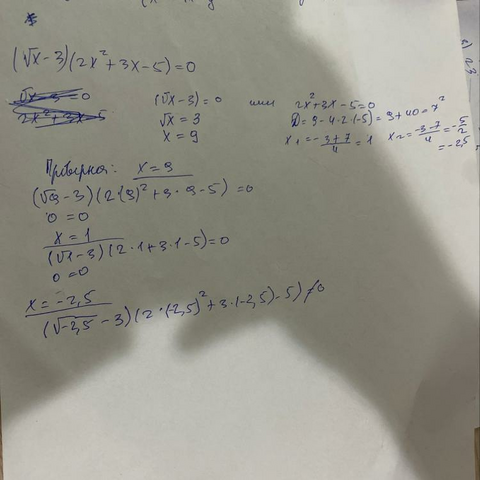 (√x-3)(2x²+3x-5)=0
(√x-3)=0 или 2x²+3x-5=0
√x=3 D=9-4·2·(-5)=9+40=7²
x=9 x₁=-3+7/4=1 x₂=-3-7/4=-5/2=-2,5
Проверка: x=9
(√9-3)(2(9)²+3·9-5)=0
0=0
x=1
(√1-3)(2·1+3·1-5)=0
0=0
x=-2,5
(√-2,5-3)(2·(-2,5)²+3·(-2,5)-5)≠0